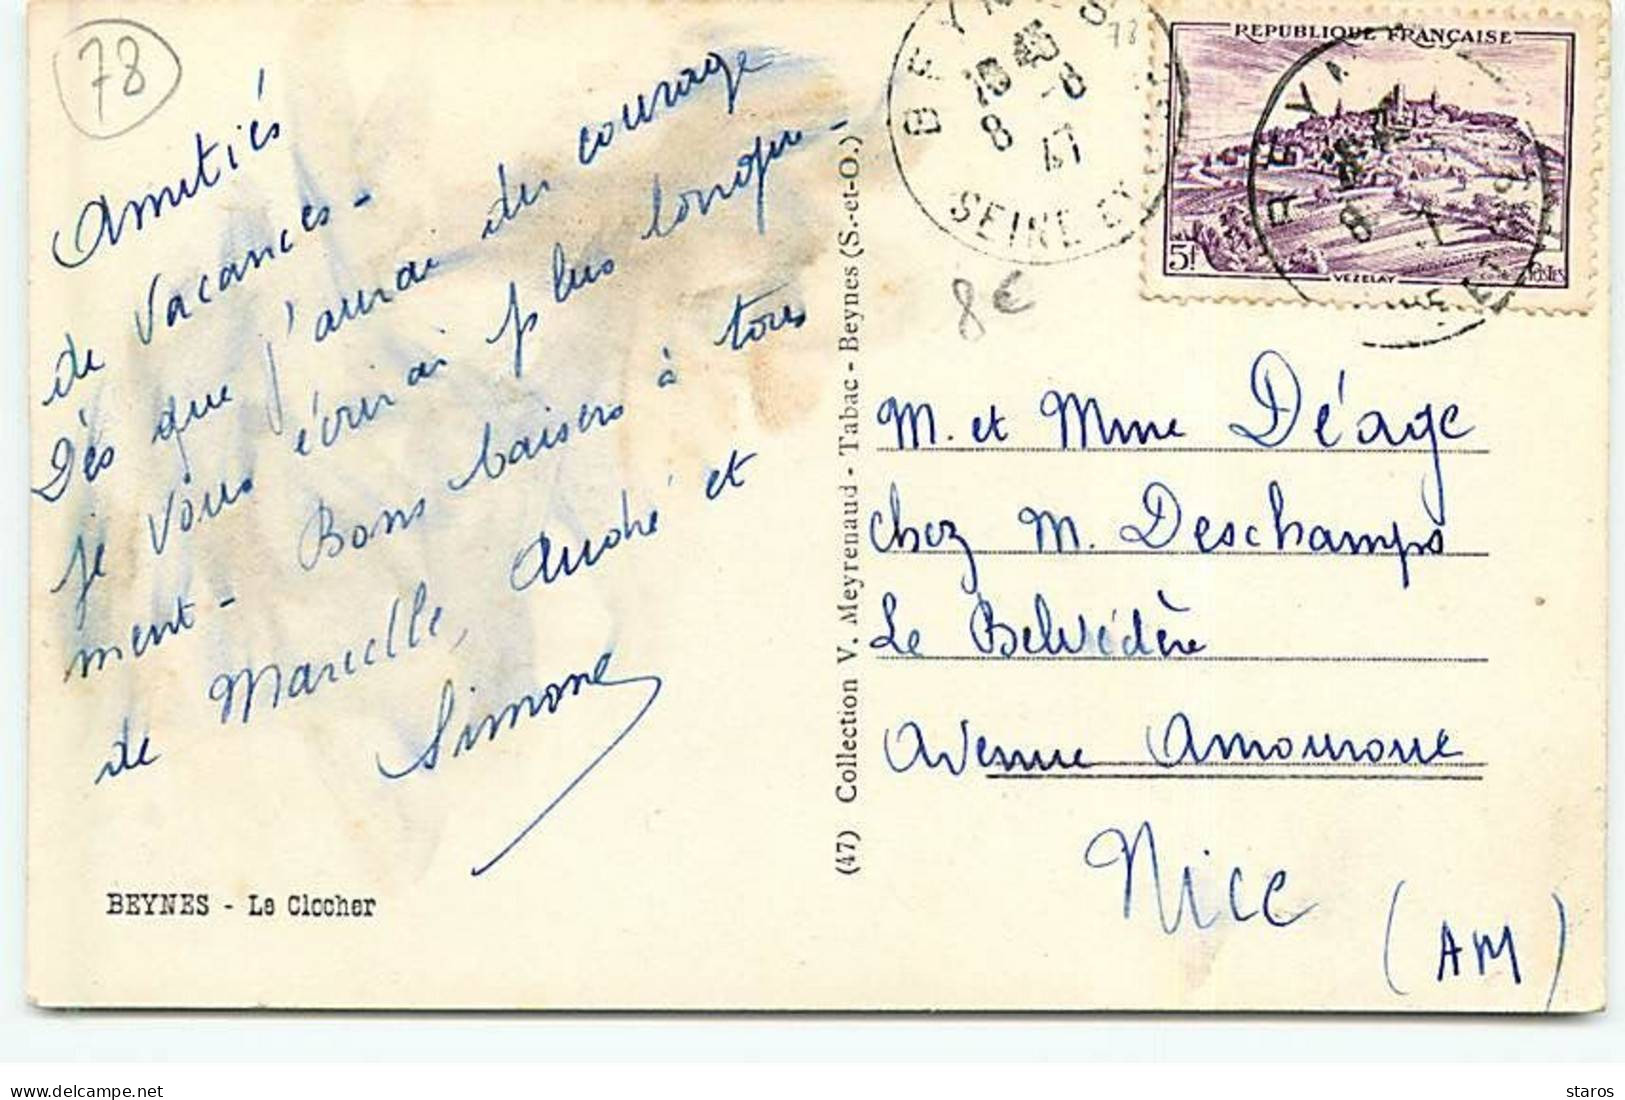 78
Amitiés
de Vacances -
Dès que j'aurai du courage
je vous écrirai plus longue-
ment - Bons baisers à tous
de Marcelle, André et
Simone
BEYNES - Le Clocher
(47) Collection V. Meyrenaud - Tabac - Beynes (S.-et-O.)
BEYNES
78
8 -8
47
SEINE ET
REPUBLIQUE FRANÇAISE
5f
VEZELAY
POSTES
8€
M. et Mme Déage
chez M. Deschamps
Le Belvédère
Avenue Amouroue
Nice
(AM)
staros